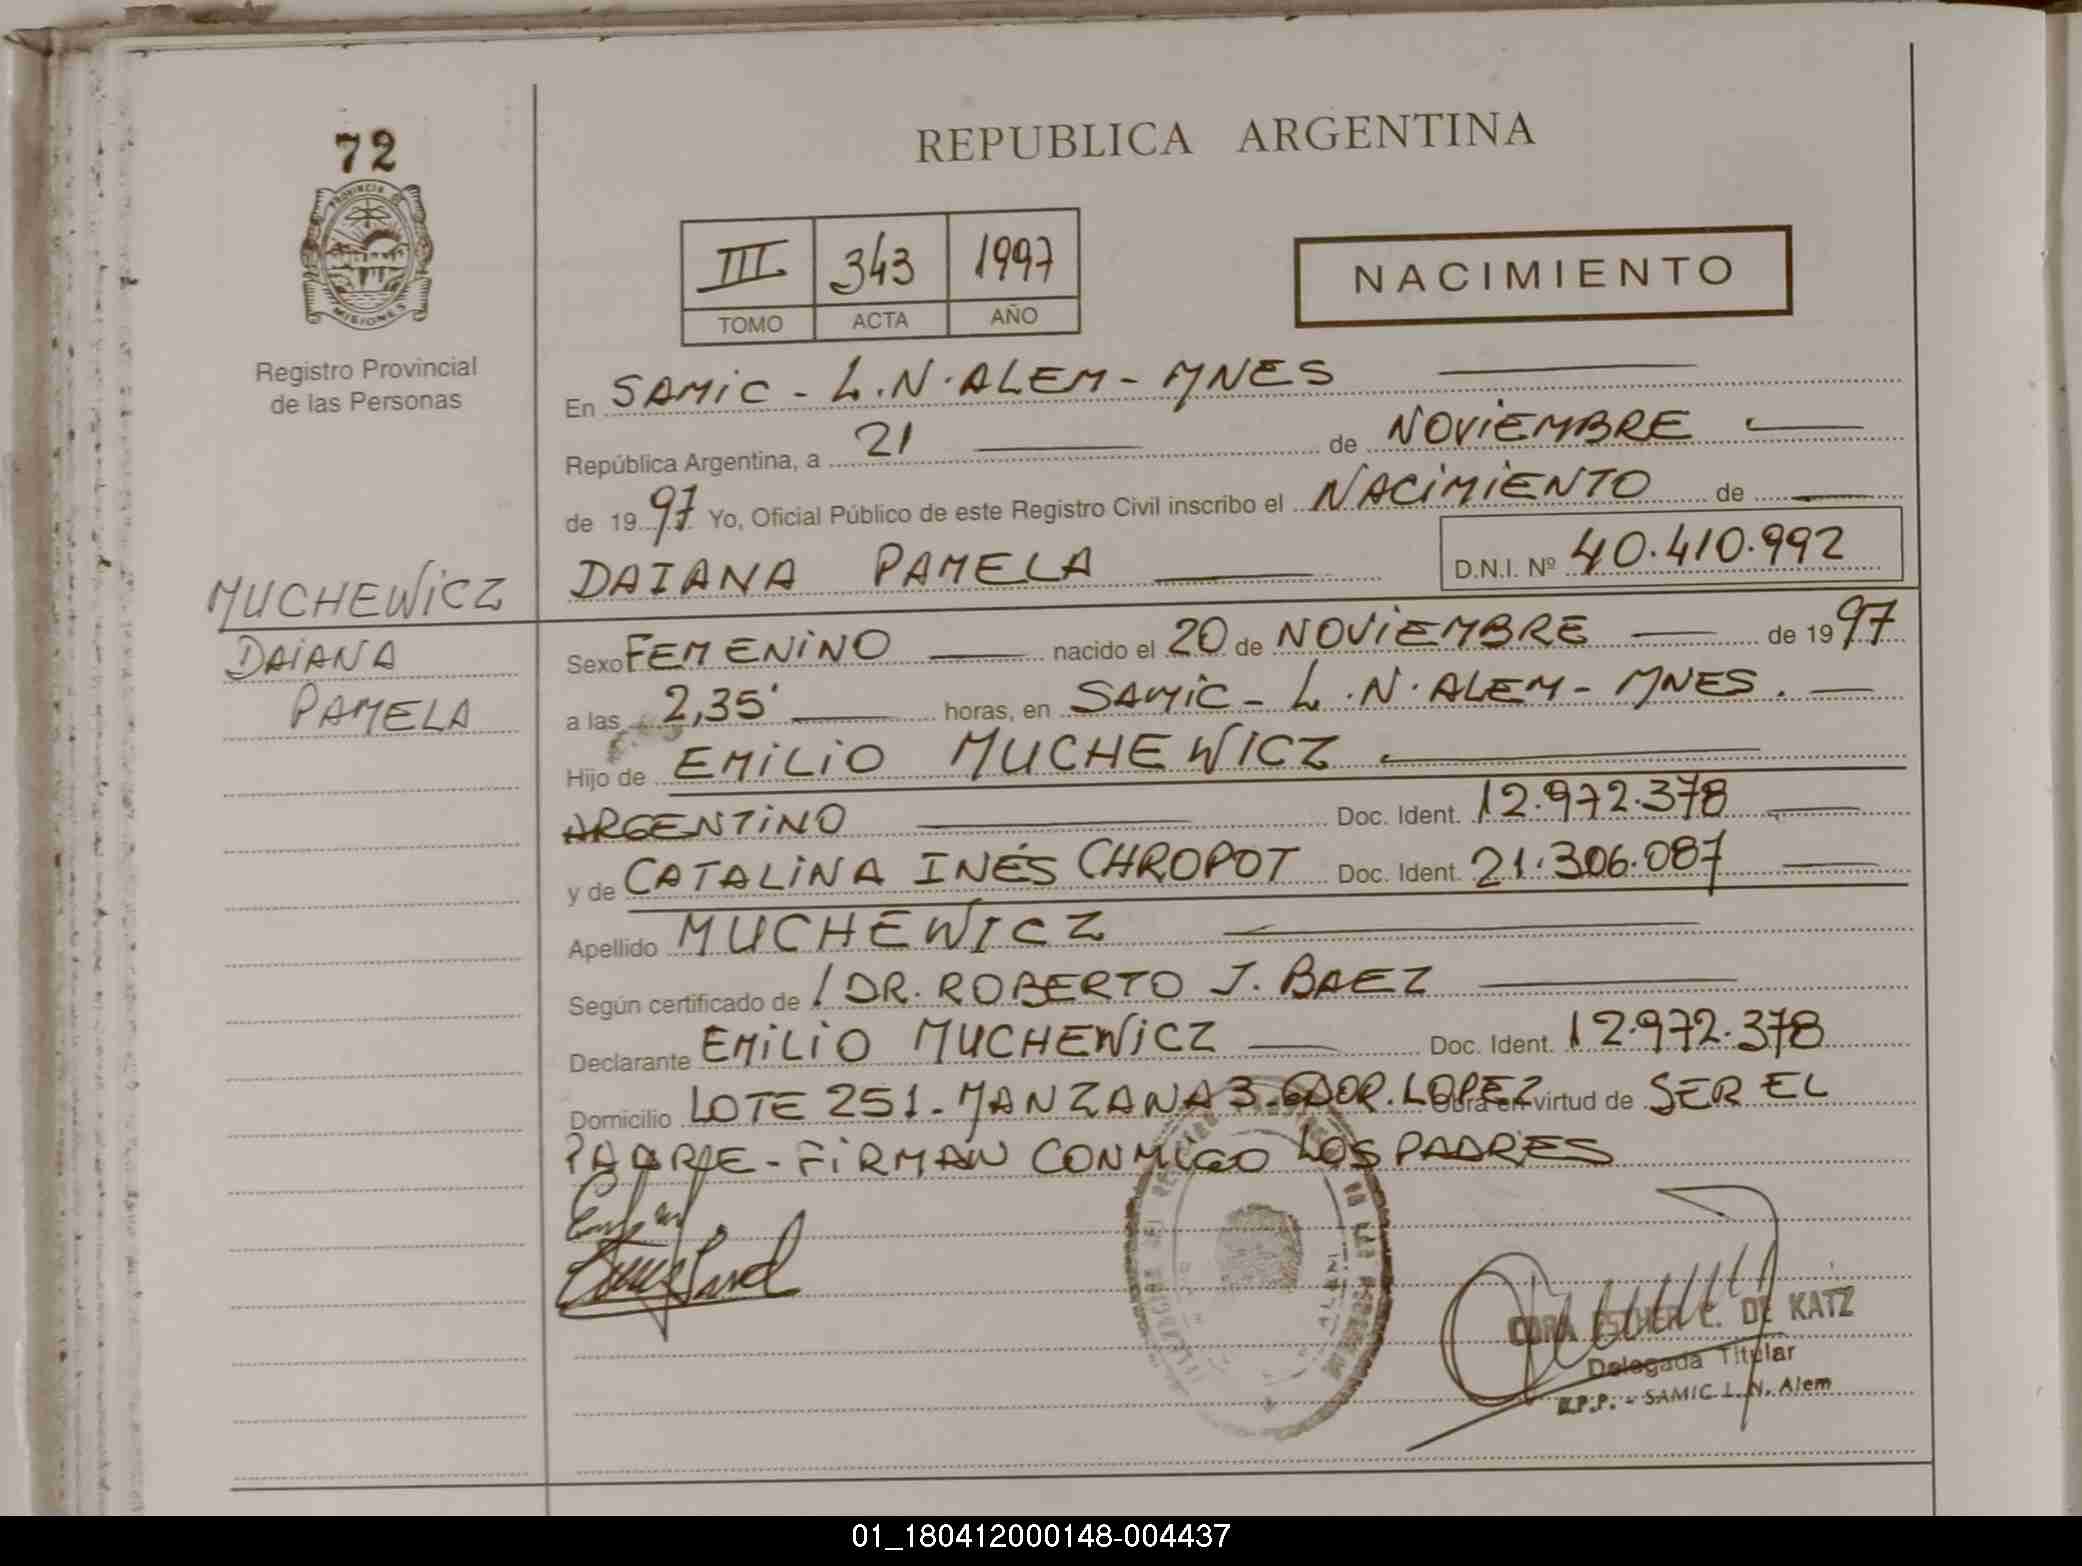 72
PROVINCIA DE
MISIONES
Registro Provincial
de las Personas
MUCHEWICZ
DAIANA
PAMELA
REPUBLICA ARGENTINA
III 343 1997
TOMO ACTA AÑO
NACIMIENTO
En SAMIC - L.N. ALEM - MNES
República Argentina, a 21 de NOVIEMBRE
de 1997 Yo, Oficial Público de este Registro Civil inscribo el NACIMIENTO de
DAIANA PAMELA D.N.I. Nº 40.410.992
Sexo FEMENINO nacido el 20 de NOVIEMBRE de 1997
a las 2,35' horas, en SAMIC - L.N. ALEM - MNES.
Hijo de EMILIO MUCHEWICZ
ARGENTINO Doc. Ident. 12.972.378
y de CATALINA INÉS CHROPOT Doc. Ident. 21.306.087
Apellido MUCHEWICZ
Según certificado de / DR. ROBERTO J. BAEZ
Declarante EMILIO MUCHEWICZ Doc. Ident. 12.972.378
Domicilio LOTE 251 - MANZANA 3 - GDOR. LOPEZ Obra en virtud de SER EL
PADRE - FIRMAN CONMIGO LOS PADRES
ESTHER C. DE KATZ
Delegada Titular
R.P.P. - SAMIC L. N. Alem
01_180412000148-004437